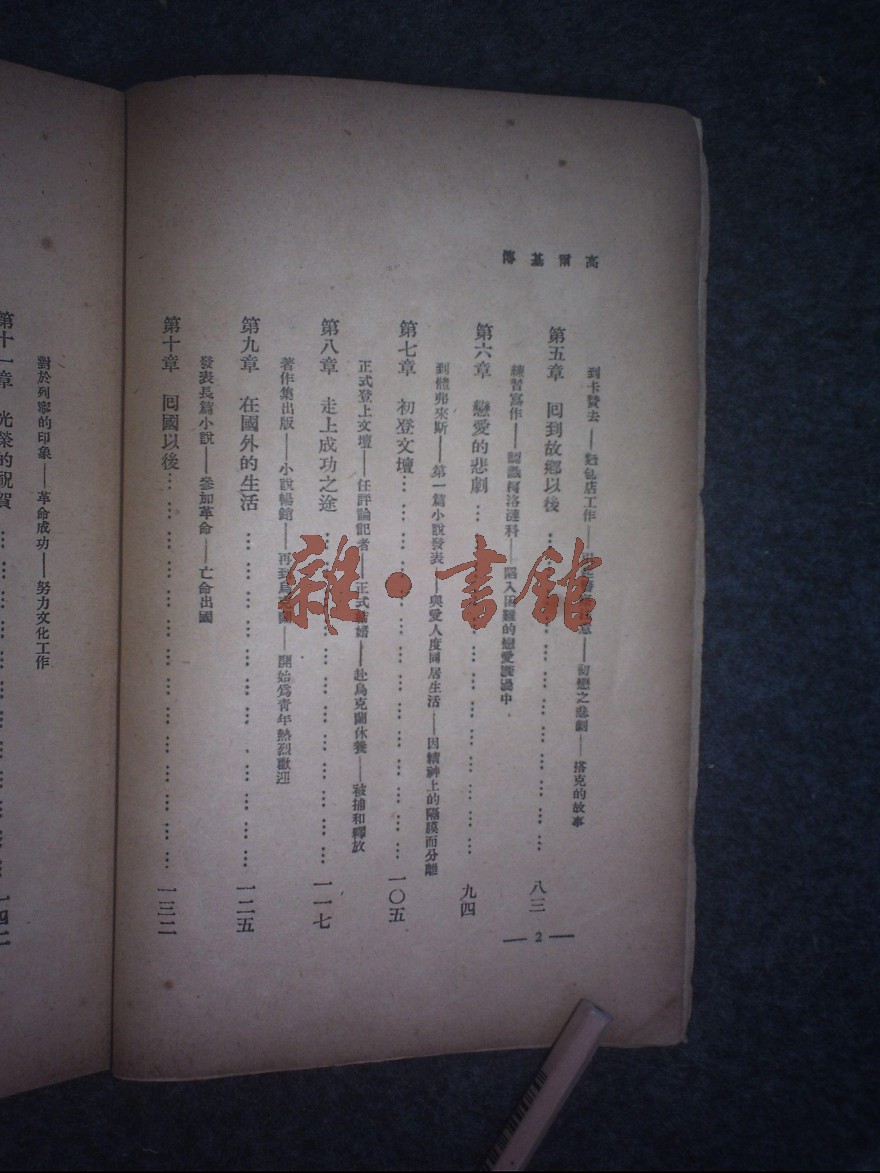 高爾基傳
到卡贊去——麪包店工作——初戀之悲劇——搭克的故事
第五章 回到故鄉以後 … … … … … … … … … 八三
練習寫作——認識柯洛漣科——陷入困難的戀愛漩渦中
第六章 戀愛的悲劇 … … … … … … … … … 九四
到體弗來斯——第一篇小說發表——與愛人度同居生活——因精神上的隔膜而分離
第七章 初登文壇 … … … … … … … … … 一〇五
正式登上文壇——任評論記者——正式結婚——赴烏克蘭休養——被捕和釋放
第八章 走上成功之途 … … … … … … … … … 一一七
著作集出版——小說暢銷——再到烏克蘭——開始爲青年熱烈歡迎
第九章 在國外的生活 … … … … … … … … … 一二五
發表長篇小說——參加革命——亡命出國
第十章 回國以後 … … … … … … … … … 一三二
對於列寧的印象——革命成功——努力文化工作
第十一章 光榮的祝賀 … … … … … … … … … 一四二
— 2 —
雜·書館